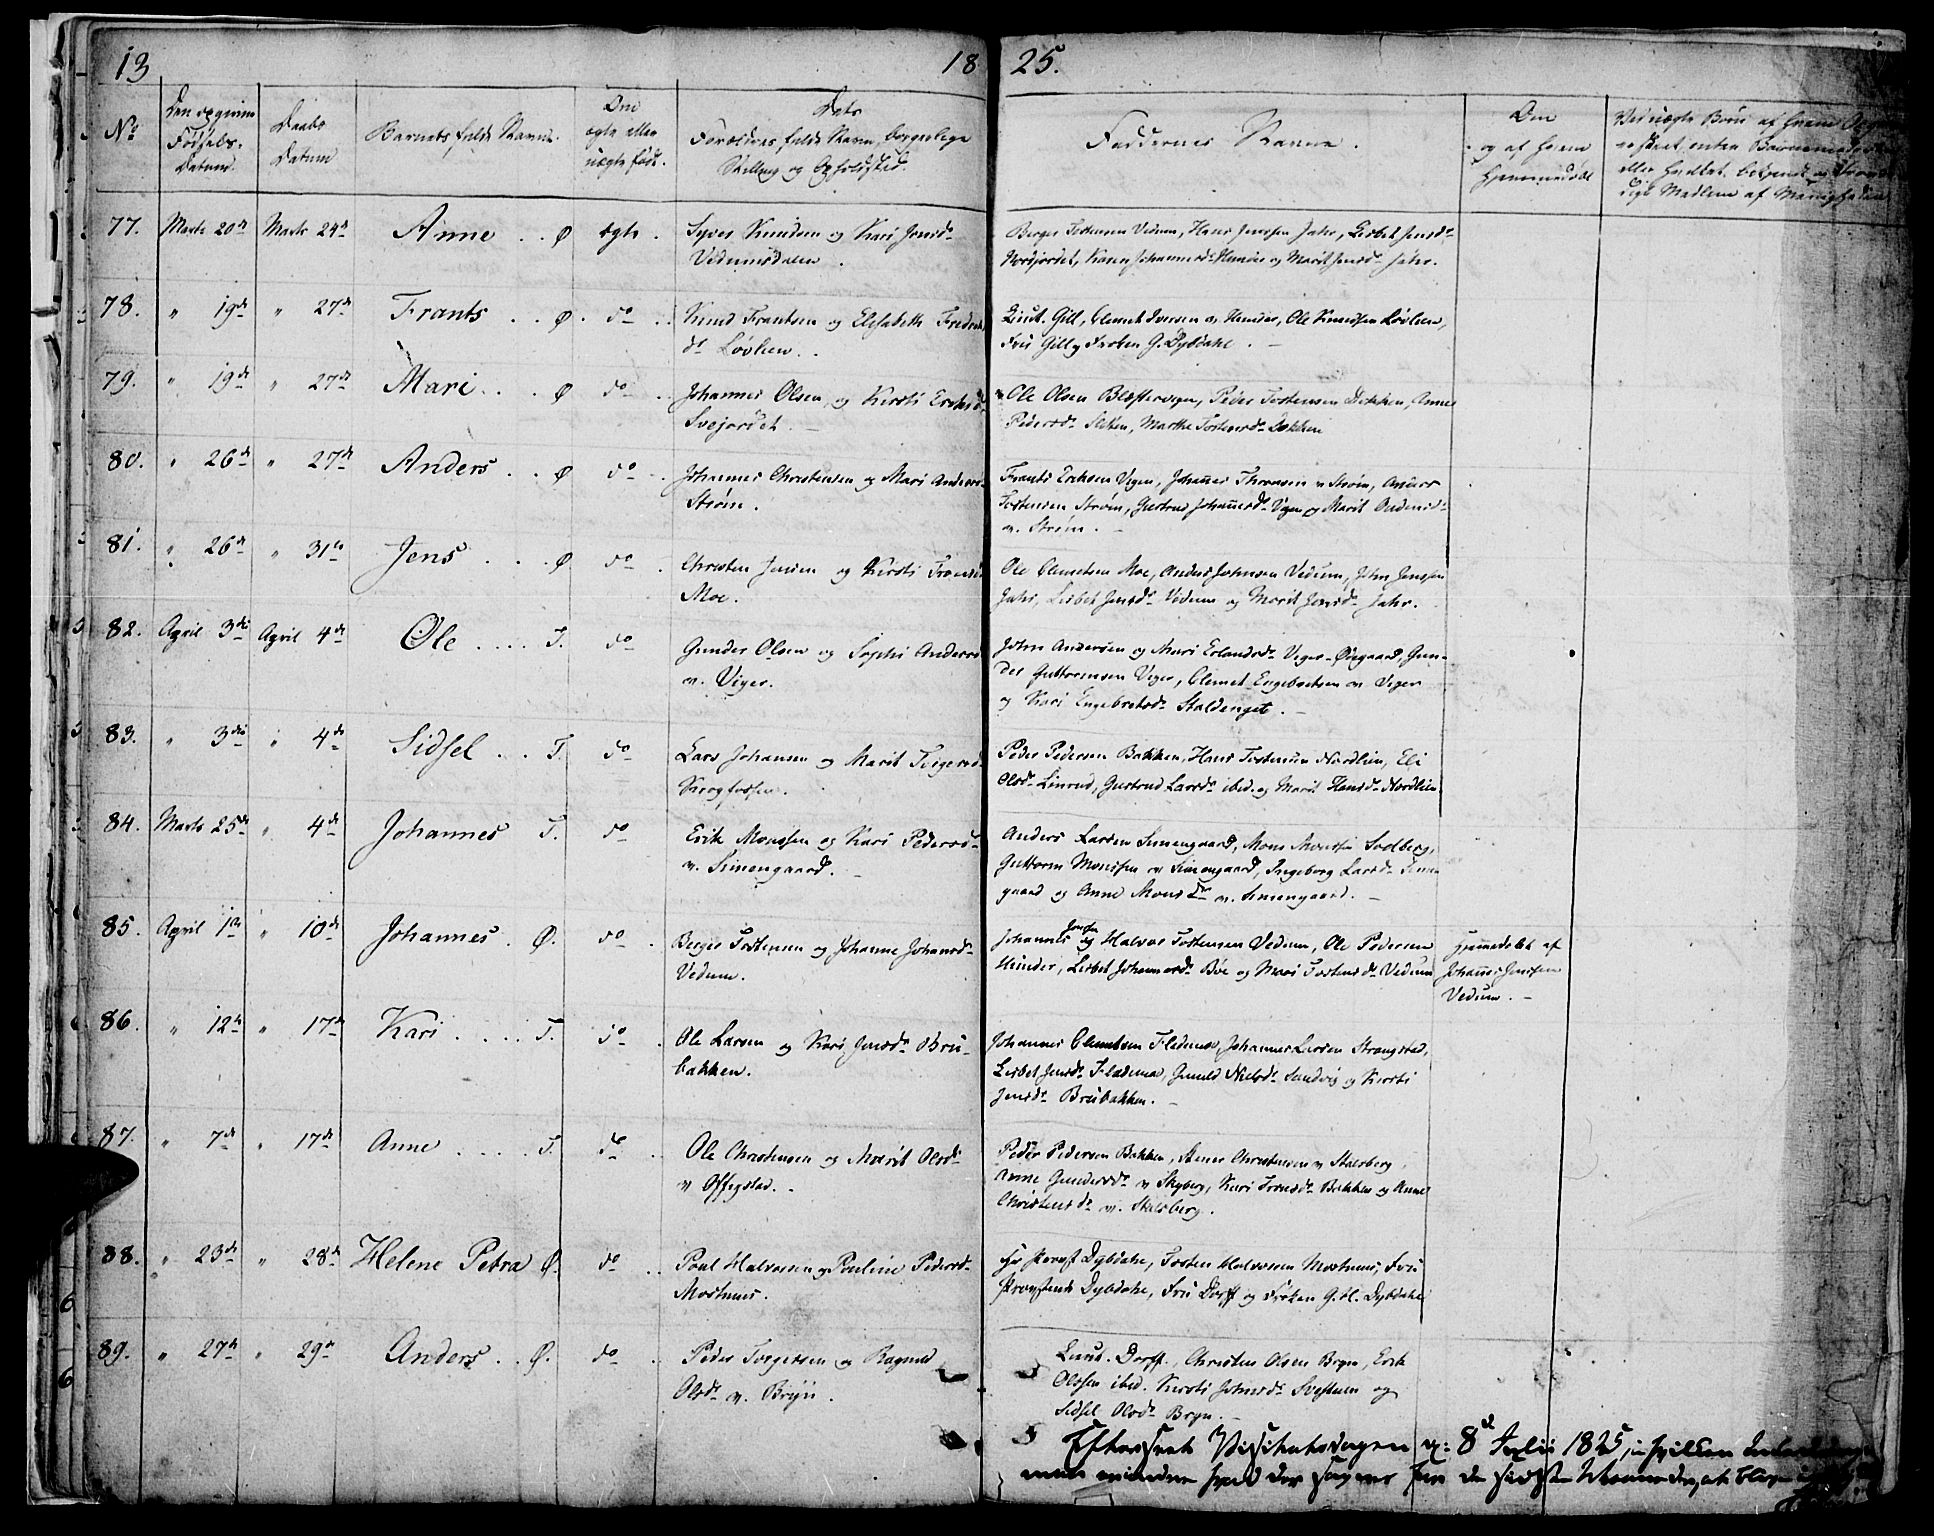 13
18 25.
No
Den opgivne
Fødsels-
Datum.
Daabs
Datum
Barnets fulde Navn.
Om
ægte eller
uægte født.
Dets
Forældres fulde Navn, borgerlige
Stilling og Opholdsted.
Faddernes Navne.
Om
og af hvem
Hjemmedøbt
77. Marts 20de Marts 24de Anne . . Ø ægte . Syver Knudsen og Kari Jensd.
Vedumsdalen .
Berger Tostensen Vedum, Hans Jenssen Jahr, Lisbet Jensd.
Nordjordet, Karen Johannesd. Hunder og Marit Jensd. Jahr.
78. " 19de " 27de Frants . . Ø . do . . Knud Frantsen og Elisabeth Fredriks
d. Løvlien . .
Lieut. Gill, Clemet Iversen n. Hunder, Ole Knudsen Løvlien,
Fru Gill og Frøken G. Dybdahl . —
79. " 19de " 27de Mari . . . Ø do . . Johannes Olsen, og Kirsti Eriksd.
Svejordet . —
Ole Olsen Blæstervogn, Peder Tostensen Dokken, Anne
Pedersd. Sletten, Marthe Tostensd. Dokken
80. " 26de " 27de Anders . . Ø do . . Johannes Christensen og Mari Andersd.
Strøm .
Frants Eriksen Viger, Johannes Thoresen n. Strøm, Anders
Tostensen Strøm, Giertrud Johannesd. Viger og Marit Andersd.
n. Strøm . —
81. " 26de " 31te Jens . . . Ø do . Christen Jensen og Kirsti
Moe.
Ole Clemetsen Moe, Anders Johnsen Vedum, John Jenssen
Jahr, Lisbet Jensd. Vedum og Marit Jensd. Jahr.
82. April 3die April 4de Ole . . . . T. do Gunder Olsen og Sophi Andersd.
n. Viger.
John Andersen og Mari Erlandsd. Viger-Østgaard, Gun-
der Guttormsen Viger, Clemet Engebretsen n. Viger
og Kari Engebretsd. Staldenget. —
83. " 3die " 4de Sidsel . . T. do Lars Johansen og Marit Torgersd.
Krogfossen.
Peder Pedersen Bakken, Hans Tostensen Nordlien, Eli
Olsd. Linrud, Giertrud Larsd. ibid. og Marit Hansd. Nordlien
84. Marts 25de " 4de Johannes T. do Erik Monssen og Kari Pedersd.
n. Simengaard. —
Anders Larsen Simengaard, Mons Monssen Sodberg,
Guttorm Monssen n. Simengaard, Ingeborg Larsd. Simen-
gaard og Anne Monsd. n. Simengaard. —
85. April 1te " 10de Johannes . Ø. do . Berger Tostensen og Johanne Johansd.
Vedum.
Johannes Jensen og Halvor Tostensen Vedum, Ole Pedersen
Hunder, Lisbet Johannesd. Bøe og Mari Tostensd. Vedum
Hjemmedøbt af
Johannes Jenssen
Vedum . —
86. " 12te " 17de Kari . . . . T. do . Ole Larsen og Kari Jensd. Bru-
bakken.
Johannes Clemetsen Flademoe, Johannes Larsen Strangstad,
Lisbet Jensd. Flademoe, Gunild Nielsd. Sandvig og Kirsti
Jensd. Brubakken. —
87. " 7de " 17de Anne . . . . T. do . Ole Christensen og Marit Olsd.
n Offigstad. .
Peder Pedersen Bakken, Stener Christensen n Stalsberg,
Anne Gundersd. n Skyberg, Kari Bakken og Anne
Christensd. n. Stalsberg.
88. " 23de " 28de Helene Petra Ø. do . . Poul Halvorsen og Pouline Pedersd.
Mostuen.
Hr Provst Dybdahl, Tosten Halvorsen Mostuen, Fru
Provstinde Dybdahl, Fru Dorff og Frøken G. M. Dybdahl
89. " 27de " 29de Anders . . Ø. do . Peder Torgersen og Ragnild
Olsd. n. Bryn .
Lieut. Dorff, Christen Olsen Bryn, Erik
Olssen ibid. Kirsti Johnsd. Svestuen og
Sidsel Olsd. Bryn. —
Efterseet Visitatsdagen d: 8de Julii 1825, i hvilken